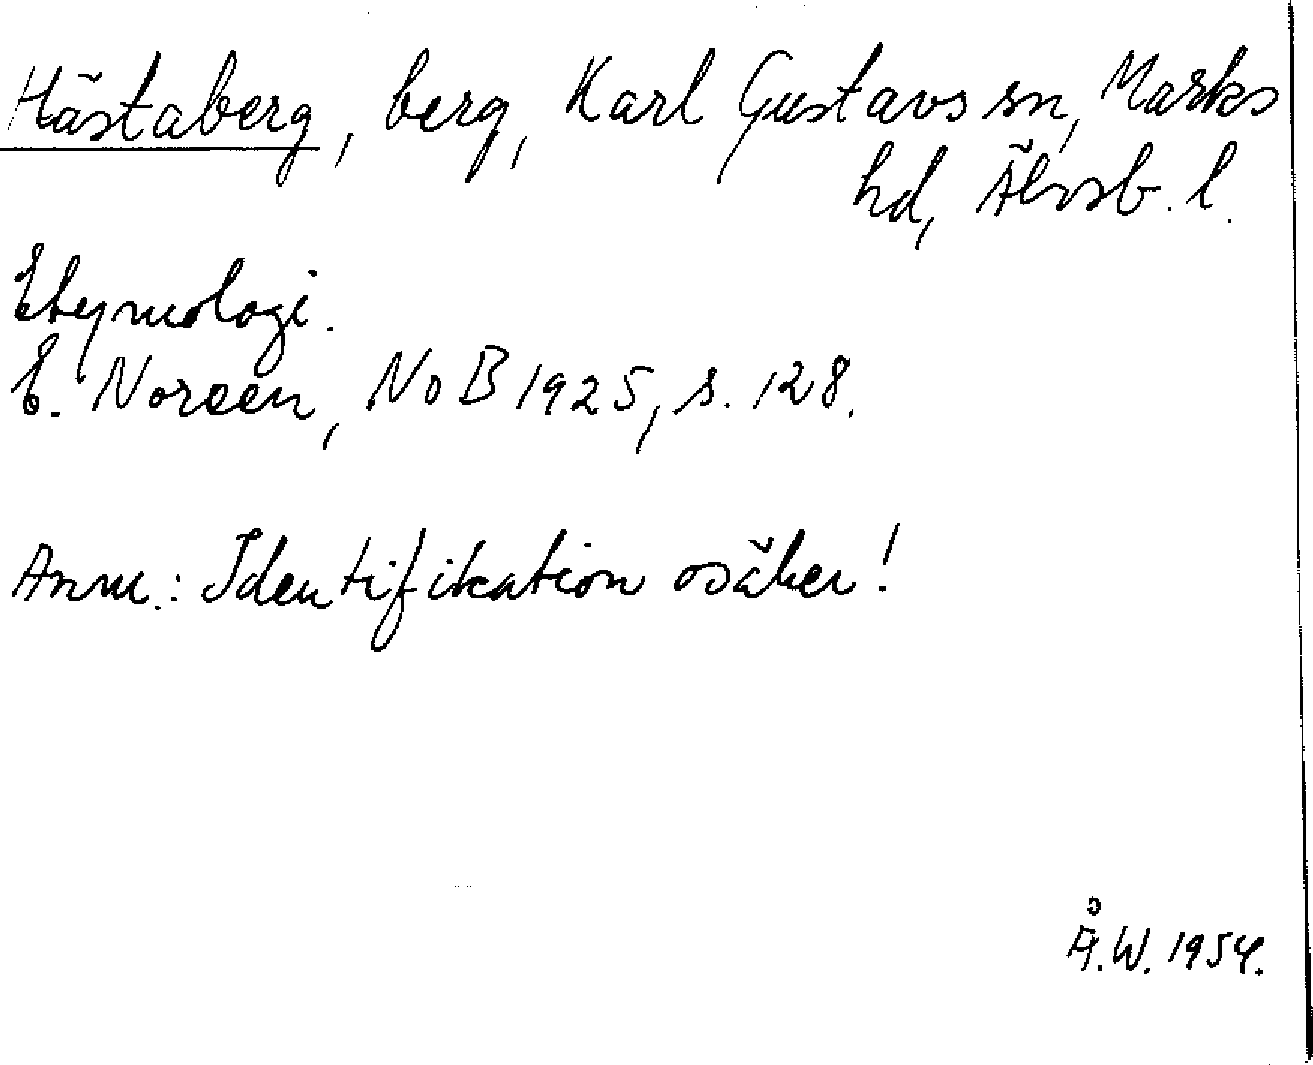 Hästaberg, berg, Karl Gustavs sn, Marks
hd, Älvsb. l.
Etymologi.
E. Noreen, NoB 1925, s. 128.
Anm.: Identifikation osäker!
Å.W. 1954.